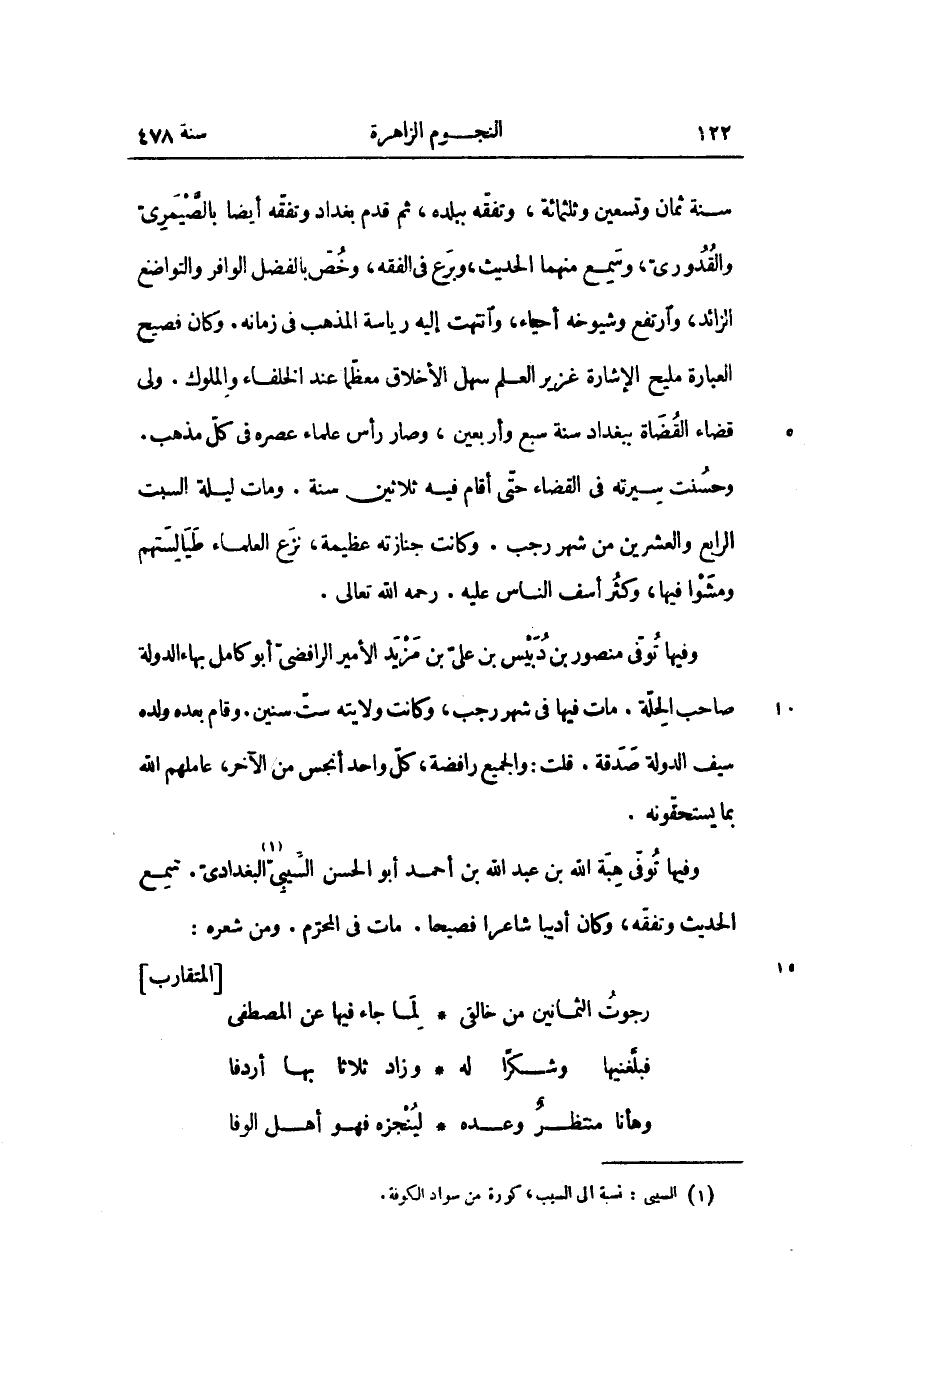 ١٢٢ النجـــوم الزاهرة سنة ٤٧٨
سـنة ثمان وتسعين وثلثمائة ، وتفقّه ببلده ، ثم قدم بغداد وتفقّه أيضا بالصَّيْمَرىّ
والقُدُورىّ، وسَمِـع منهما الحديث، وبرَع فى الفقه، وخُصّ بالفضل الوافر والتواضع
الزائد، وآرتفع وشيوخه أحياء، وآنتهت إليه رياسة المذهب فى زمانه. وكان فصيح
العبارة مليح الإشارة غزير العـلم سهل الأخلاق معظّما عند الخلفـاء والملوك . ولى
قضاء القُضَاة ببغداد سنة سبع وأربعين ، وصار رأس علماء عصره فى كلّ مذهب. ٥
وحسُنت سِيرته فى القضاء حتّى أقام فيـه ثلاثين سنة . ومات ليـلة السبت
الرابع والعشرين من شهر رجب . وكانت جنازته عظيمة، نزَع العلمـاء طَيَالِسَتهم
ومشَوْا فيها، وكثُر أسف النـاس عليه . رحمه الله تعالى .
وفيها تُوفّى منصور بن دُبَيْس بن علىّ بن مَزْيَد الأمير الرافضىّ أبو كامل بهاء الدولة
صاحب الحِلّة . مات فيها فى شهر رجب، وكانت ولايته ستّ سنين. وقام بعده ولده ١٠
سيف الدولة صَدَقة . قلت: والجميع رافضة، كلّ واحد أنجس من الآخر، عاملهم الله
بما يستحقّونه .
وفيها تُوفّى هِبَة الله بن عبد الله بن أحمـد أبو الحسن السِّيبِىّ(١) البغدادىّ. سمِـع
الحديث وتفقّه، وكان أديبا شاعرا فصيحا . مات فى المحرّم . ومن شعره :
[المتقارب] ١٥
رجوتُ الثمـانين من خالقى * لِمَـا جاء فيها عن المصطفى
فبلَّغنيها وشـكرًا له * وزاد ثلاثا بهـا أردفا
وهأنا منتظـرٌ وعـده * ليُنْجزه فهـو أهـل الوفا
(١) السيبى : نسبة الى السيب، كورة من سواد الكوفة.